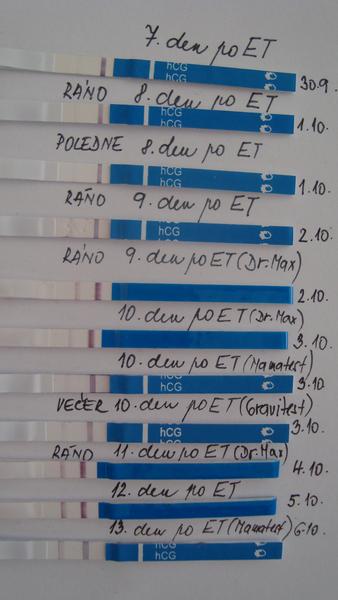 7. den po ET
hCG
hCG
30.9.
RÁNO 8. den po ET
hCG
hCG
1.10.
POLEDNE 8. den po ET
hCG
hCG
1.10.
RÁNO 9. den po ET
hCG
hCG
2.10.
RÁNO 9. den po ET (Dr.Max)
2.10.
10. den po ET (Dr.Max)
3.10.
10. den po ET (Mamatest)
hCG
hCG
3.10.
VEČER 10. den po ET (Gravitest)
hCG
hCG
3.10.
RÁNO 11. den po ET (Dr.Max)
4.10.
12. den po ET
5.10.
13. den po ET (Mamatest) 6.10.
hCG
hCG